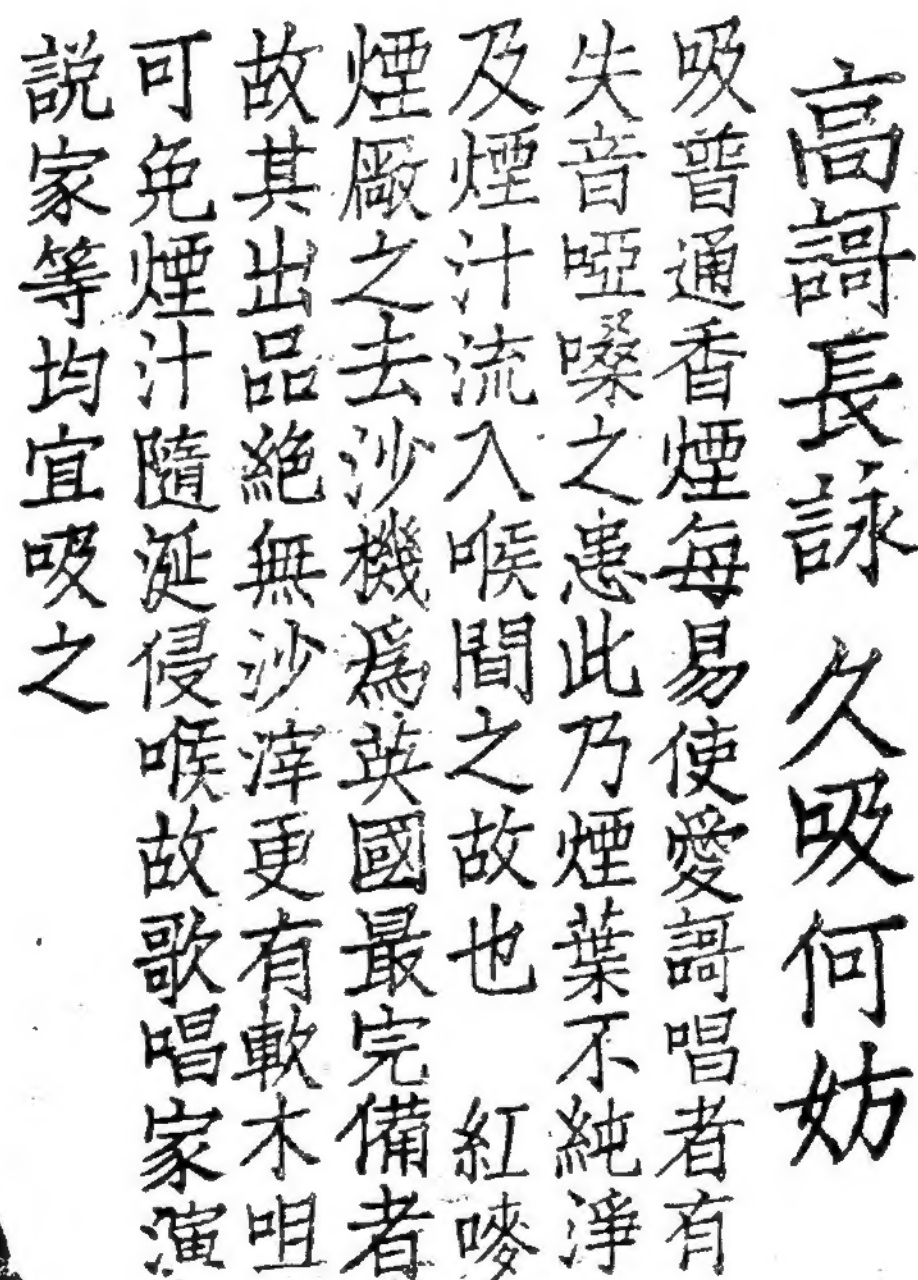 高謌長詠 久吸何妨
吸普通香煙每易使愛謌唱者有
失音啞嗓之患此乃煙葉不純淨
及煙汁流入喉間之故也 紅嘜
煙廠之去沙機爲英國最完備者
故其出品絶無沙滓更有軟木咀
可免煙汁隨涎侵喉故歌唱家演
説家等均宜吸之